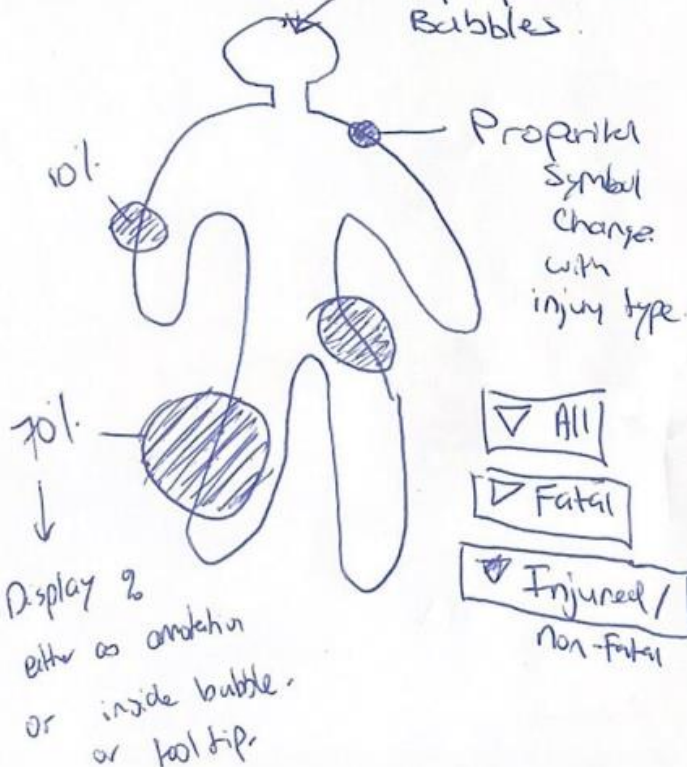 Bubbles.
10%
Symbol
Change
with
injury type.
70%
All
Fatal
Injured /
non-Fatal
Display %
either as
or inside bubble.
or tooltip.